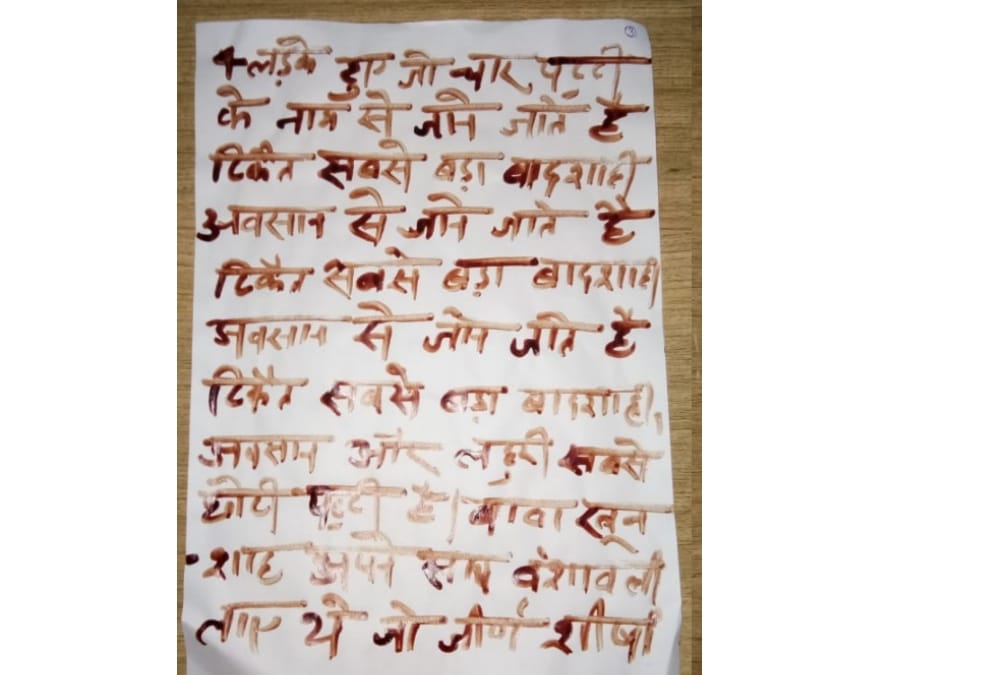 ३
4 लड़के हुए जो चार पट्टी
के नाम से जाने जाते है
टिकैत सबसे बड़ा बादशाही
अवसान से जाने जाते है
टिकैत सबसे बड़ा बादशाही
अवसान से जाने जाते है
टिकैत सबसे बड़ा बादशाही,
अवसान और लहुरी सबसे
छोटी पट्टी है। बाबा खून
शाह अपने साथ वंशावली
लाए थे जो जीर्ण शीर्ष